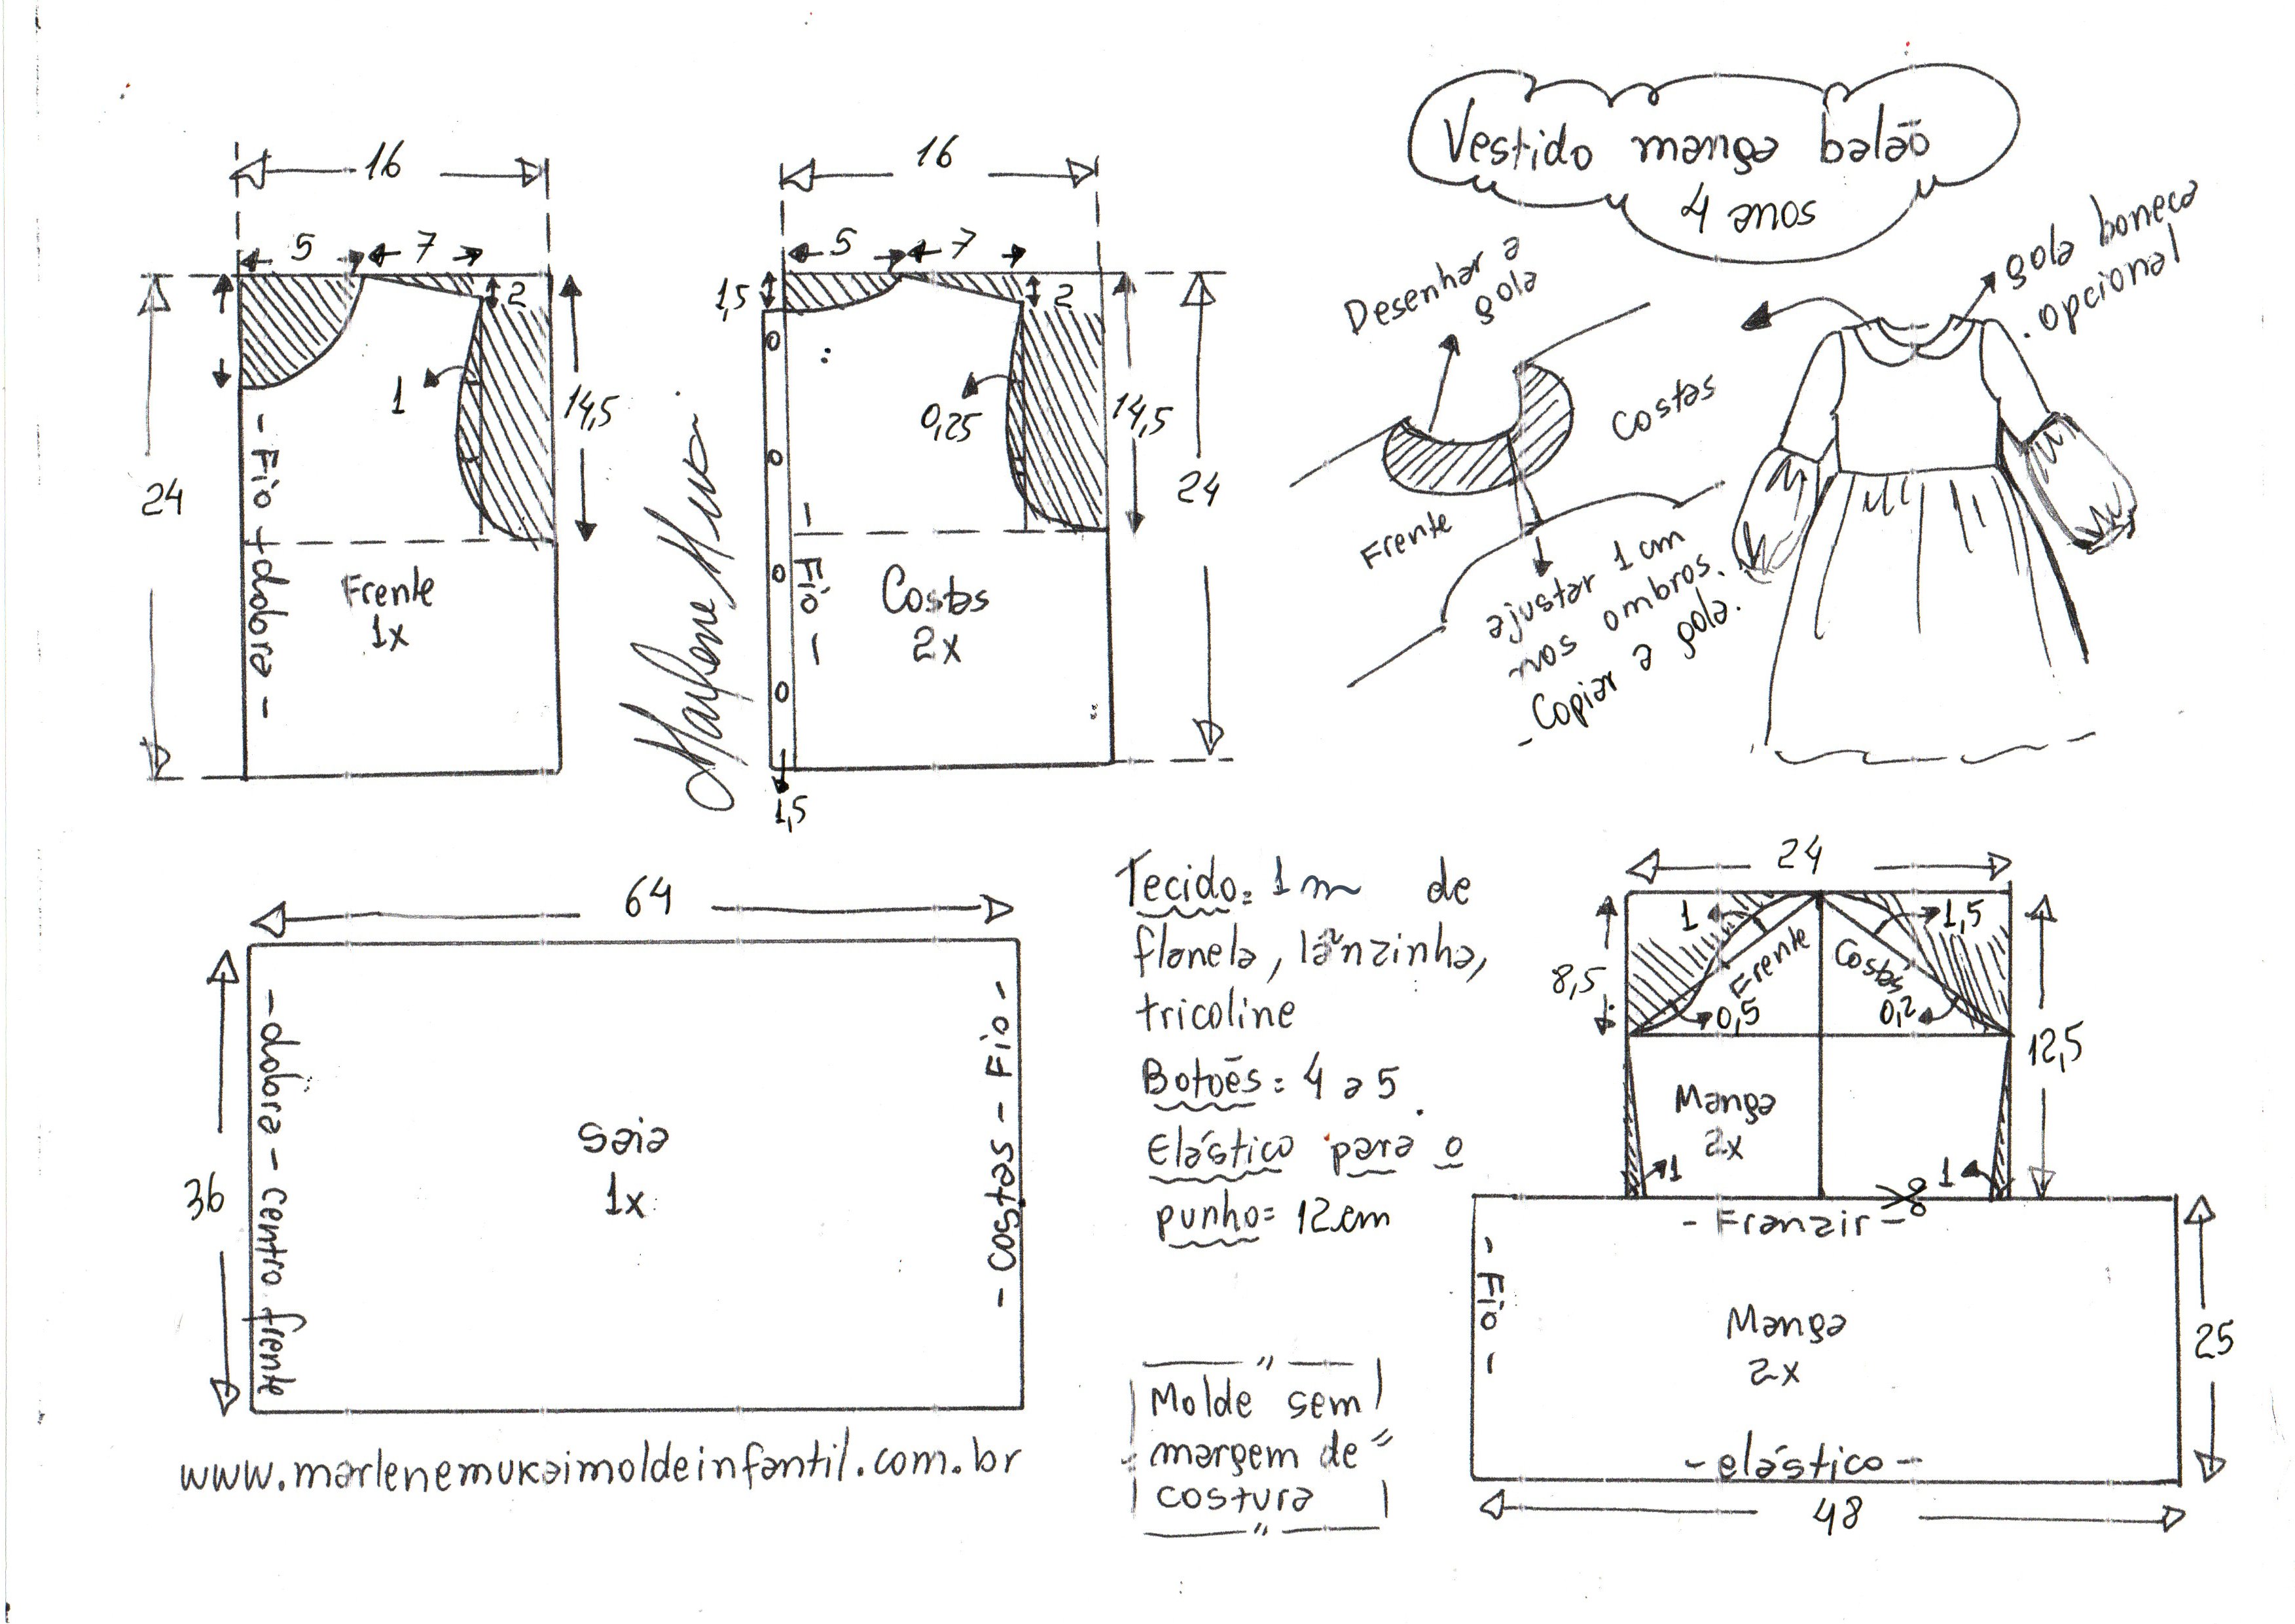 Vestido manga balão
4 anos
16
5
7
2
1
14,5
24
- Fio - dobra -
Frente
1x
16
5
7
1,5
2
0,25
14,5
24
- Fio -
Costas
2x
1,5
Desenhar a
gola
Costas
Frente
ajustar 1 cm
nos ombros.
- Copiar a gola.
gola boneca
opcional
64
36
- dobra - centro frente
Saia
1x
- Costas - Fio -
www.marlenemukaimoldeinfantil.com.br
Tecido = 1 m de
flanela, lãnzinha,
tricoline
Botões = 4 a 5
Elástico para o
punho = 12 cm
Molde sem
margem de
costura
24
1
1,5
8,5
Frente
Costas
0,5
0,2
12,5
Manga
2x
1
1
- Franzir -
- Fio -
Manga
2x
25
- elástico -
48